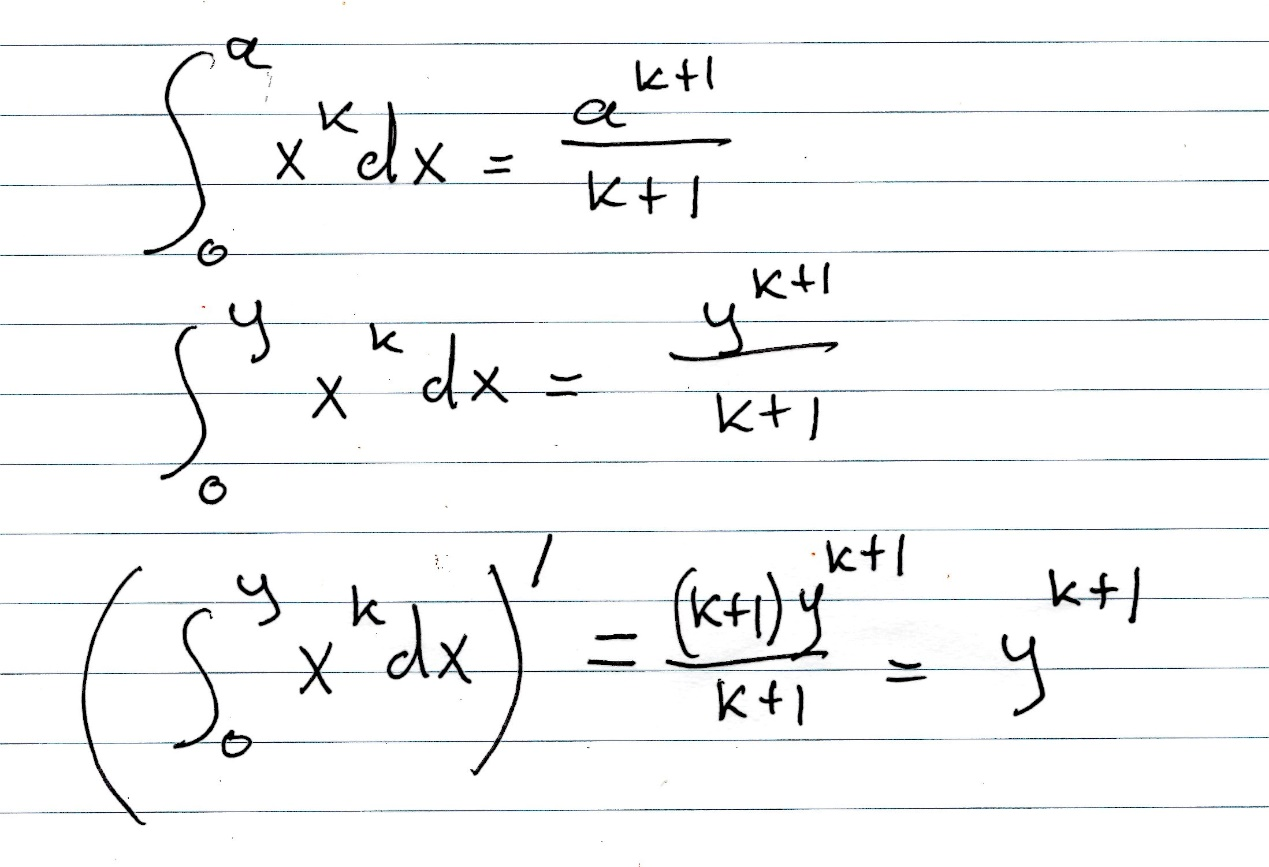 ∫₀ᵃ xᵏ dx = aᵏ⁺¹/(k+1)
∫₀ʸ xᵏ dx = yᵏ⁺¹/(k+1)
(∫₀ʸ xᵏ dx)′ = (k+1)yᵏ⁺¹/(k+1) = yᵏ⁺¹